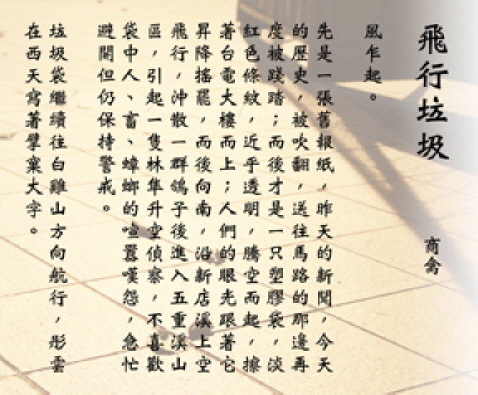 飛行垃圾
商禽
風乍起。
先是一張舊報紙，昨天的新聞，今天
的歷史，被吹翻，送往馬路的那邊再
度被踐踏；而後才是一只塑膠袋，淡
紅色條紋，近乎透明，騰空而起，擦
著台電大樓而上；人們的眼光跟著它
昇降搖罷，而後向南，沿新店溪上空
飛行，沖散一群鴿子後進入五重溪山
區，引起一隻林隼升空偵察，不喜歡
袋中人、畜、蟑螂的喧囂嘆怨，急忙
避開但仍保持警戒。
垃圾袋繼續往白雞山方向航行，彤雲
在西天寫著擘窠大字。